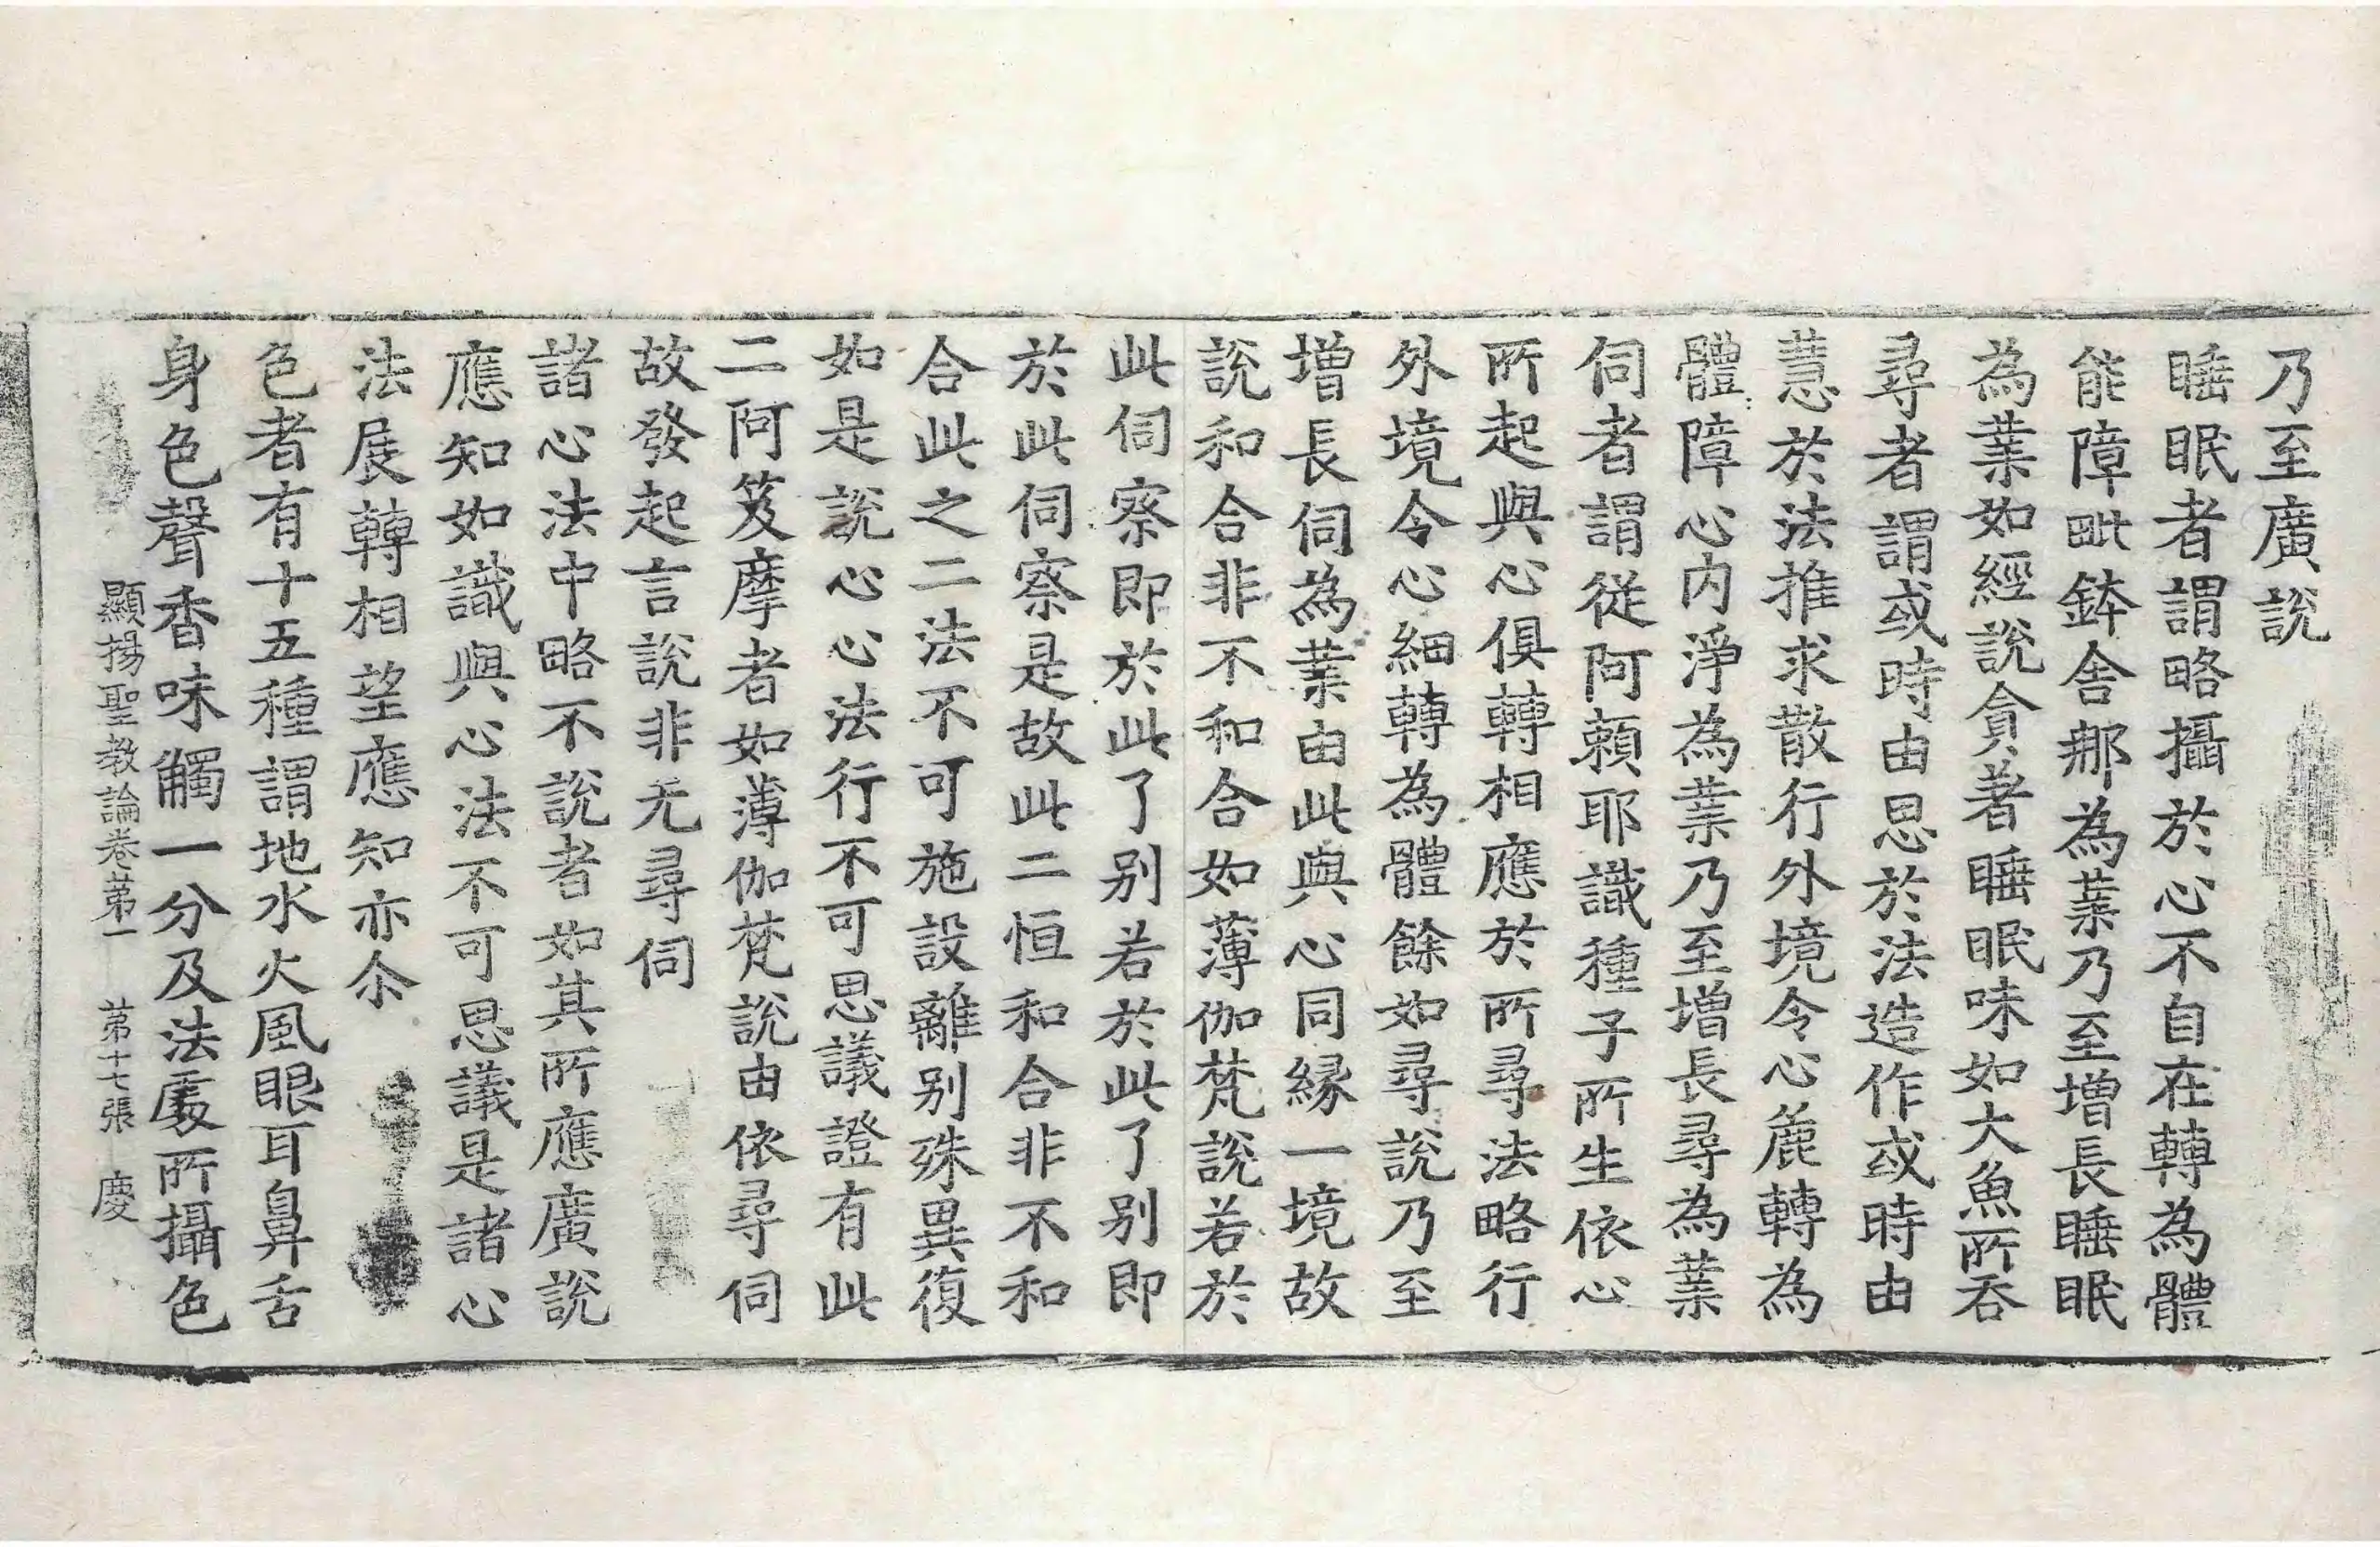 乃至廣說
睡眠者謂略攝於心不自在轉為體
能障毗鉢舍那為業乃至增長睡眠
為業如經說貪著睡眠味如大魚所吞
尋者謂或時由思於法造作或時由
慧於法推求散行外境令心麁轉為
體障心内淨為業乃至增長尋為業
伺者謂從阿賴耶識種子所生依心
所起與心俱轉相應於所尋法略行
外境令心細轉為體餘如尋說乃至
增長伺為業由此與心同緣一境故
說和合非不和合如薄伽梵說若於
此伺察即於此了别若於此了别即
於此伺察是故此二恒和合非不和
合此之二法不可施設離别殊異復
如是說心心法行不可思議證有此
二阿笈摩者如薄伽梵說由依尋伺
故發起言說非无尋伺
諸心法中略不說者如其所應廣說
應知如識與心法不可思議是諸心
法展轉相望應知亦尒
色者有十五種謂地水火風眼耳鼻舌
身色聲香味觸一分及法處所攝色
顯揚聖教論卷苐一　苐十七張　慶